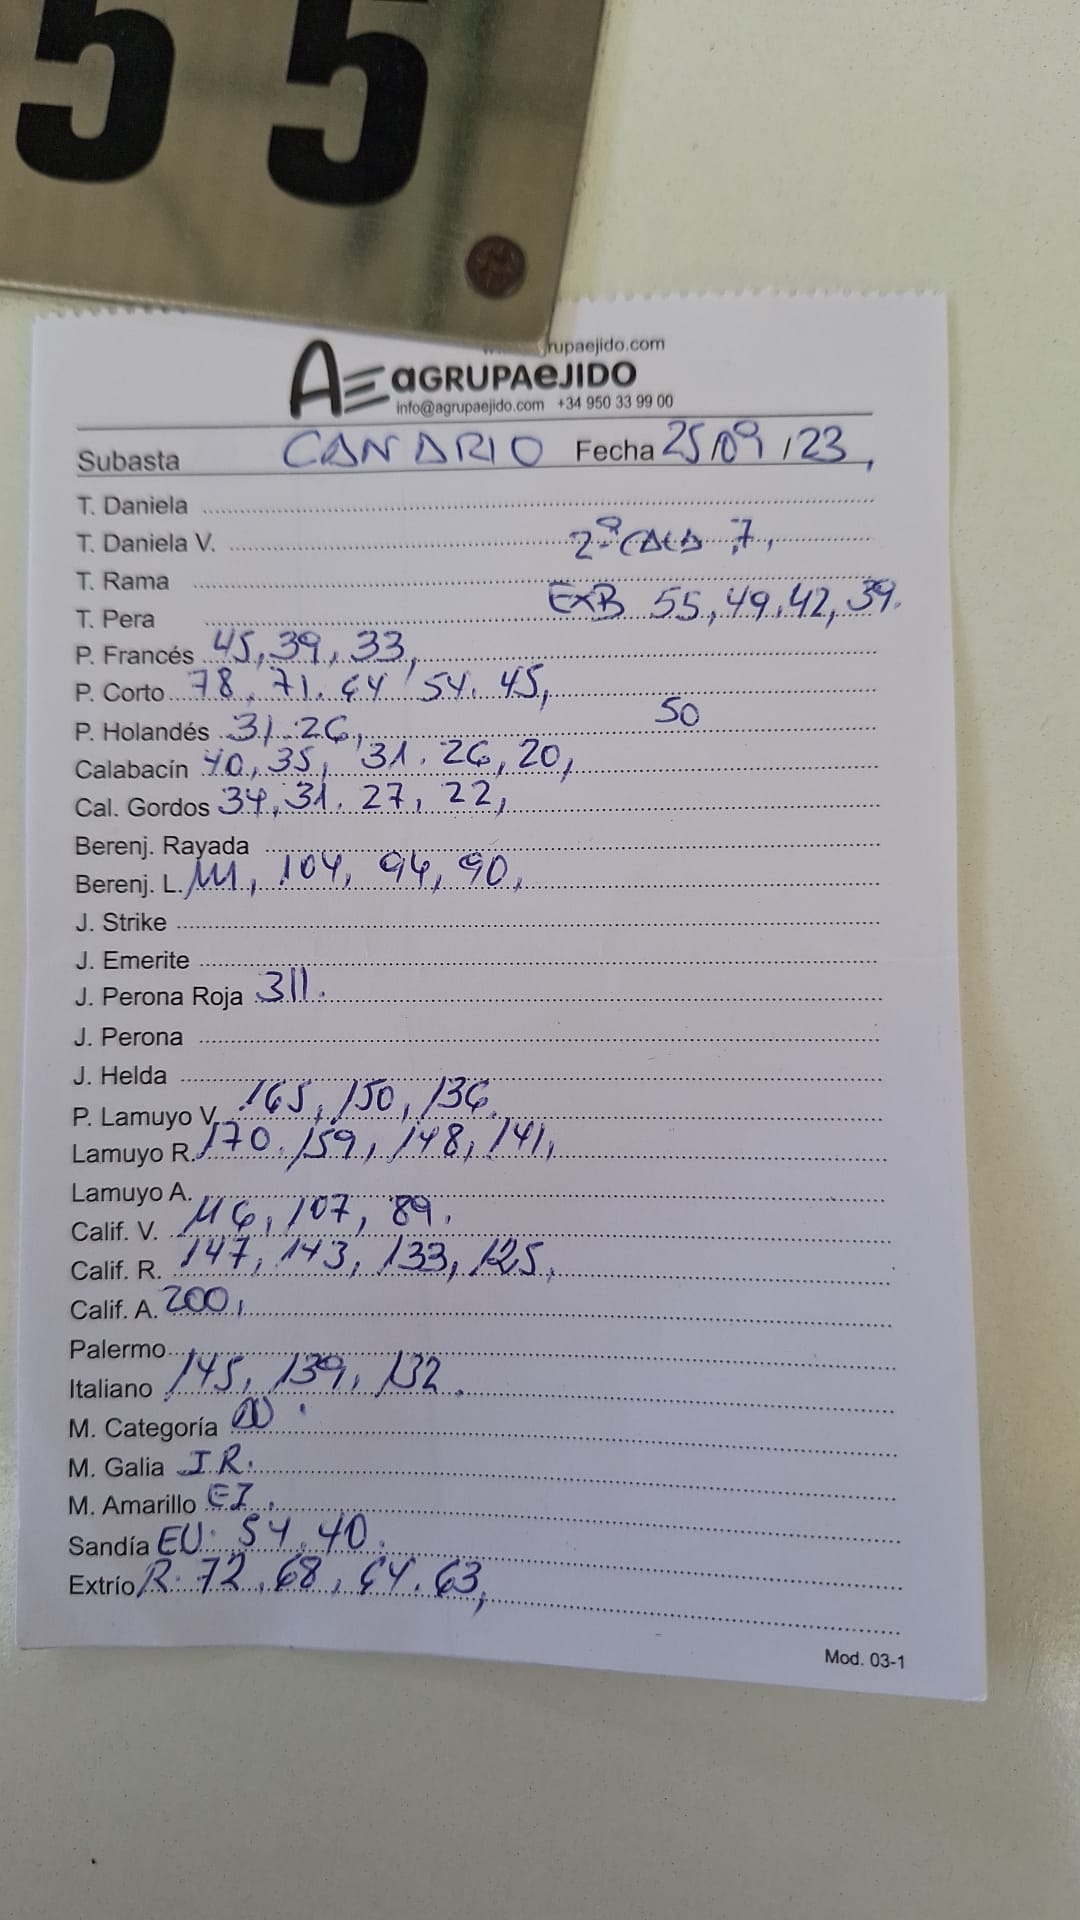 55
rupaejido.com
AE aGRUPAeJIDO
info@agrupaejido.com +34 950 33 99 00
Subasta CANARIO Fecha 25/09/23,
T. Daniela
T. Daniela V. 2ª CALA 7,
T. Rama
T. Pera EXB 55, 49, 42, 39.
P. Francés 45, 39, 33,
P. Corto 78, 71. 64, 54. 45,
P. Holandés 31. 26, 50
Calabacín 40, 35, 31. 26, 20,
Cal. Gordos 34, 31. 27, 22,
Berenj. Rayada
Berenj. L. 111, 104, 94, 90,
J. Strike
J. Emerite
J. Perona Roja 311.
J. Perona
J. Helda
P. Lamuyo V. 165, 150, 136.
Lamuyo R. 170. 159, 148, 141,
Lamuyo A.
Calif. V. 116, 107, 89.
Calif. R. 147, 143, 133, 125,
Calif. A. 200,
Palermo
Italiano 145, 139, 132.
M. Categoría
M. Galia I.R.
M. Amarillo EI.
Sandía EU. 54, 40.
Extrío R. 72, 68, 64. 63,
Mod. 03-1